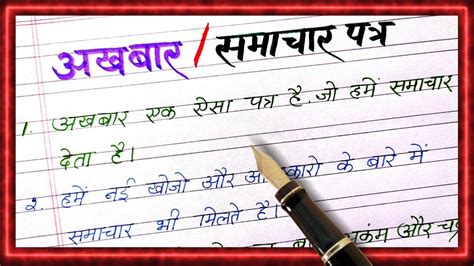 अखबार / समाचार पत्र
1. अखबार एक ऐसा पत्र है, जो हमें समाचार
देता है।
2. हमें नई खोजो और के बारे में
समाचार भी मिलते हैं।
और